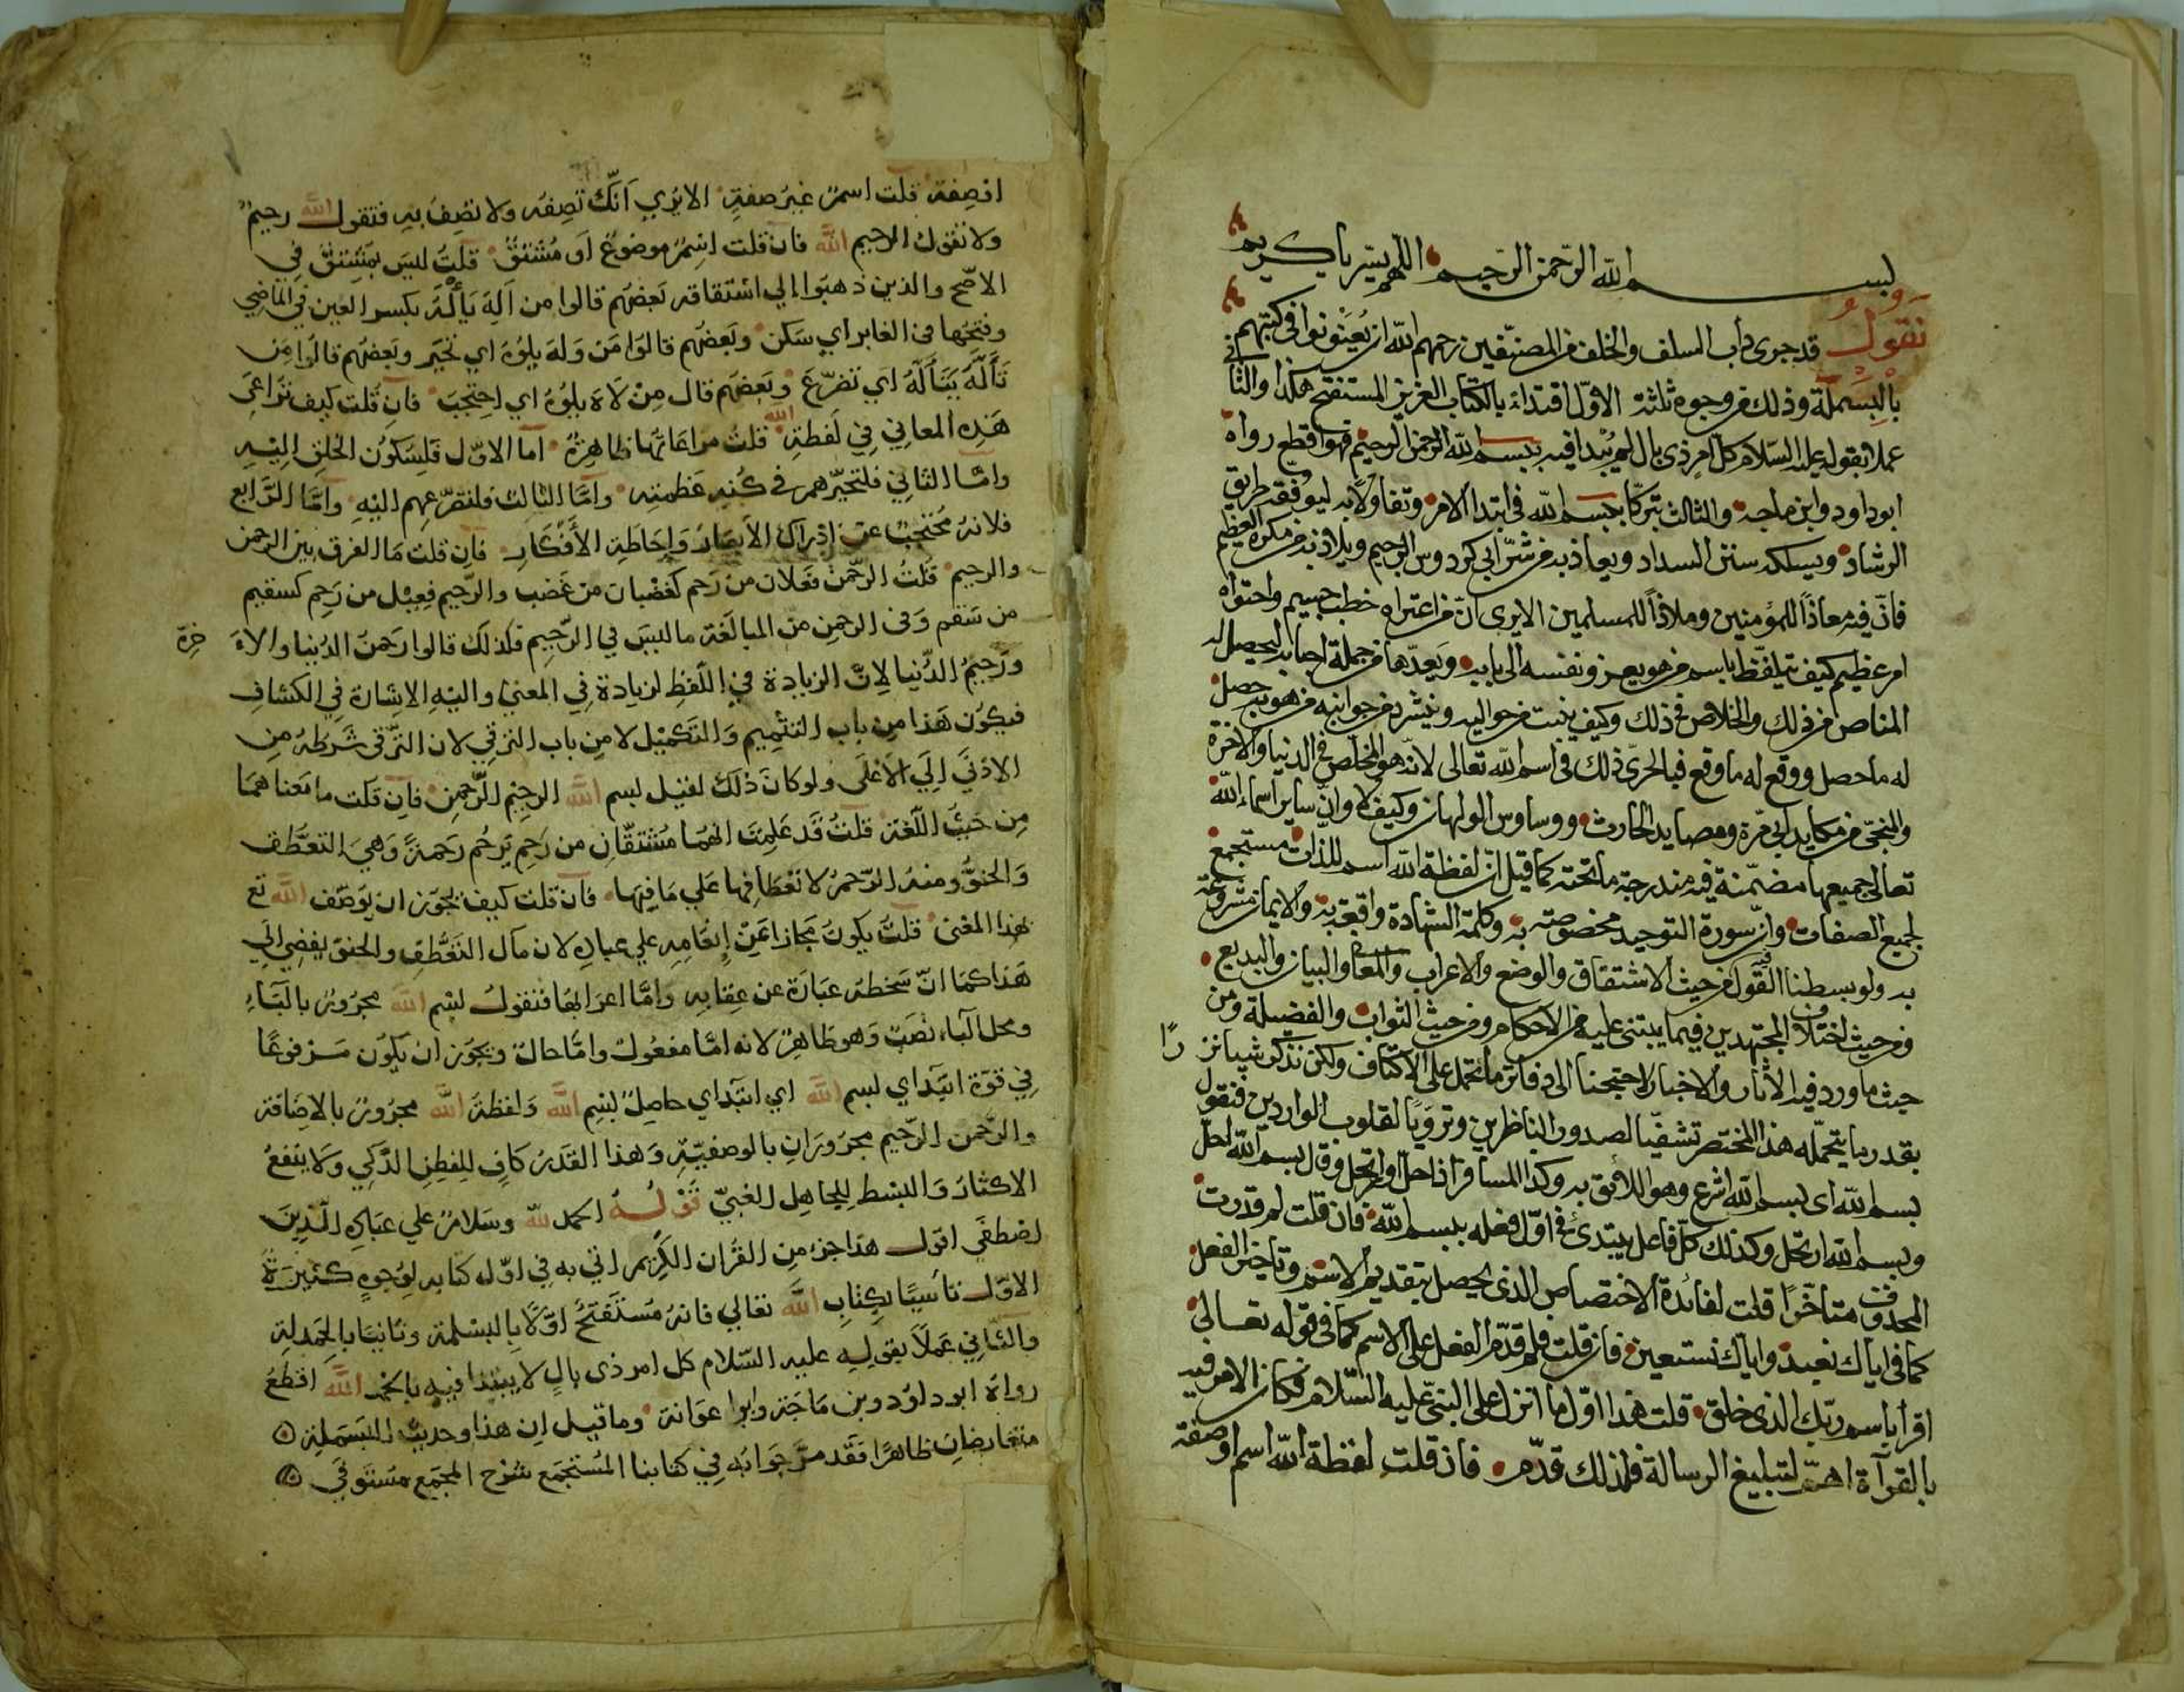 بســـــم الله الرحمن الرحيم اللهم يسر يا كريم
نقول قد جرى دأب السلف والخلف من المصنفين رحمهم الله ان يعنونوا في كتبهم
بالبسملة وذلك من وجوه ثلثة الاول اقتداء بالكتاب العزيز المستفتح هكذا والثاني
عملا بقوله عليه السلام كل امر ذي بال لم يبدا فيه ببسم الله الرحمن الرحيم فهو اقطع رواه
ابو داود وابن ماجه والثالث تبركا ببسم الله في ابتدا الامر وتفاولا به ليوفقه طريق
الرشاد ويسلكه سنن السداد ويعاذ به من شر ابي كردوس الرجيم ويلاذ به من مكره العظيم
فان فيه معاذا للمؤمنين وملاذا للمسلمين الا يرى ان من اعتراه خطب جسيم واحتواه
امر عظيم كيف يتلفظ باسم من هو يعز ونفسه الى بابيه ويعدها من جملة احبابه ليحصل له
المناص من ذلك والخلاص في ذلك وكيف يذب من حواليه وينشرد من جوانبه من هو به حصل
له ما حصل ووقع له ما وقع فبالحري ذلك في اسم الله تعالى لانه هو المخلص في الدنيا والاخرة
والمنجي من مكايد ابي مرة ومصايد الحارث ووساوس الولهان وكيف لا وان ساير اسماء الله
تعالى جميعها مضمنة فيه مندرجة ما تحته كما قيل ان لفظة الله اسم للذات مستجمع
لجميع الصفات وان سورة التوحيد مخصوصة به وكلمة الشهادة واقعة به والايمان مشروعة
به ولو بسطنا القول فيه من حيث الاشتقاق والوضع والاعراب والمعاني والبيان والبديع
ومن حيث اختلاف المجتهدين فيما يبتنى عليه من الاحكام ومن حيث الثواب والفضيلة ومن
حيث ما ورد فيه الاثار والاخبار لاحتجنا الى دفاتر ما تحمل على الاكتاف ولكن نذكر شيا نزرا
بقدر ما يتحمله هذا المختصر تشفيا لصدور الناظرين وترويا لقلوب الواردين فنقول
بسم الله اي بسم الله اشرع وهو اللائق به وكذا المسافر اذا حل او ارتحل وقال بسم الله احل
وبسم الله ارتحل وكذلك كل فاعل يبتدئ في اول فعله ببسم الله فان قلت لم قدرت
المحذوف متاخرا قلت لفائدة الاختصاص الذي يحصل بتقديم الاسم وتاخير الفعل
كما في اياك نعبد واياك نستعين فان قلت فلم قدم الفعل على الاسم كما في قوله تعالى
اقرا باسم ربك الذي خلق قلت هذا اول ما انزل على النبي عليه السلام فكان الامر فيه
بالقرآة اهم لتبليغ الرسالة فلذلك قدم فان قلت لفظة الله اسم او صفة
او صفة قلت اسم غير صفة الا يرى انك تصفه ولا تصف به فتقول الله رحيم
ولا تقول الرحيم الله فان قلت اسم موضوع او مشتق قلت ليس بمشتق في
الاصح والذين ذهبوا الي اشتقاقه بعضهم قالوا من اله يأله بكسر العين في الماضي
وفتحها في الغابر اي سكن وبعضهم قالوا من وله يلوه اي تحير وبعضهم قالوا من
تأله يتأله اي تضرع وبعضهم قال من لاه يلوه اي احتجب فان قلت كيف تراعى
هذه المعاني في لفظة الله قلت مراعاتها ظاهرة اما الاول فلسكون الخلق اليه
واما الثاني فلتحيرهم في كنه عظمته واما الثالث فلتضرعهم اليه واما الرابع
فلانه محتجب عن ادراك الابصار واحاطة الافكار فان قلت ما الفرق بين الرحمن
والرحيم قلت الرحمن فعلان من رحم كغضبان من غضب والرحيم فعيل من رحم كسقيم
من سقم وفي الرحمن من المبالغة ما ليس في الرحيم فلذلك قالوا رحمن الدنيا والاخرة
ورحيم الدنيا لان الزيادة في اللفظ لزيادة في المعنى واليه الاشارة في الكشاف
فيكون هذا من باب التتميم والتكميل لا من باب الترقي لان الترقي شرطه من
الادنى الي الاعلى ولو كان ذلك لقيل بسم الله الرحيم الرحمن فان قلت ما معناهما
من حيث اللغة قلت قد علمت انهما مشتقان من رحم يرحم رحمة وهي التعطف
والحنو ومنه الرحم لانعطافها علي ما فيها فان قلت كيف يجوز ان يوصف الله تع
بهذا المعنى قلت يكون مجازا عن انعامه علي عباده لان مآل التعطف والحنو يفضي الي
هذا كما ان سخطه عبارة عن عقابه واما اعرابها فنقول بسم الله مجرور بالباء
ومحل الباء نصب وهو ظاهر لانه اما مفعول واما حال ويجوز ان يكون مرفوعا
في قوة ابتداي بسم الله اي ابتداي حاصل بسم الله ولفظة الله مجرورة بالاضافة
والرحمن الرحيم مجروران بالوصفية وهذا القدر كاف للفطن الذكي ولا ينفع
الاكثار والبسط للجاهل الغبي قوله الحمد لله وسلام علي عباده الذين
اصطفى اقول هذا جزء من القران الكريم اتي به في اول كتابه لوجوه كثيرة
الاول تأسيا بكتاب الله تعالي فانه مستفتح اولا بالبسملة وثانيا بالحمدلة
والثاني عملا بقوله عليه السلام كل امر ذي بال لا يبتدا فيه بالحمد الله اقطع
رواه ابو داود وبن ماجة وابوا عوانة وما قيل ان هذا وحديث البسملة
متعارضان ظاهرا فقد مر جوابه في كتابنا المستجمع شرح المجمع مستوفى